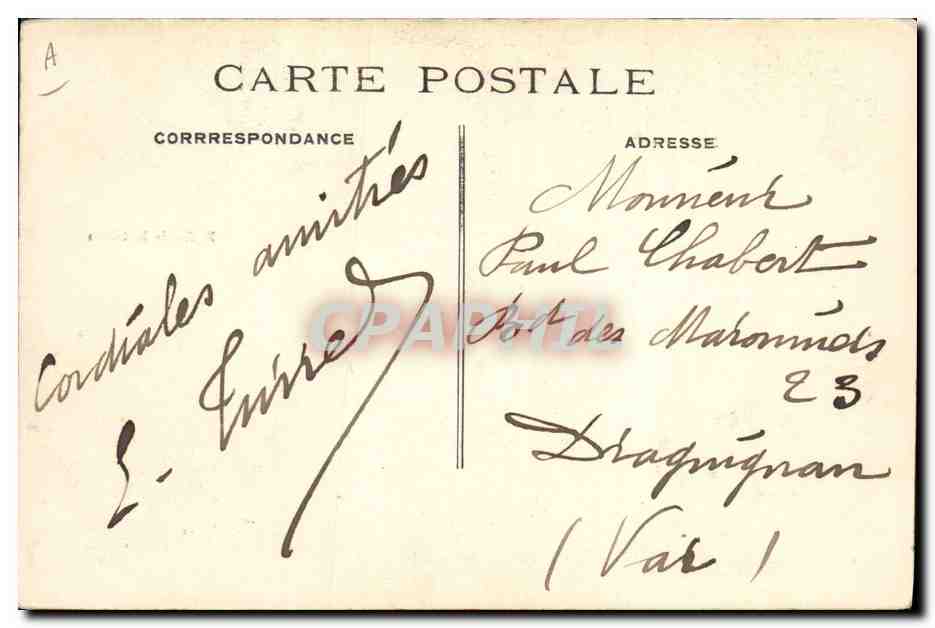 A
CARTE POSTALE
CORRRESPONDANCE
Cordiales amitiés
E. Turrel
ADRESSE
Monsieur
Paul Chabert
Bd des Marronniers
23
Draguignan
(Var)
CPAPHIL